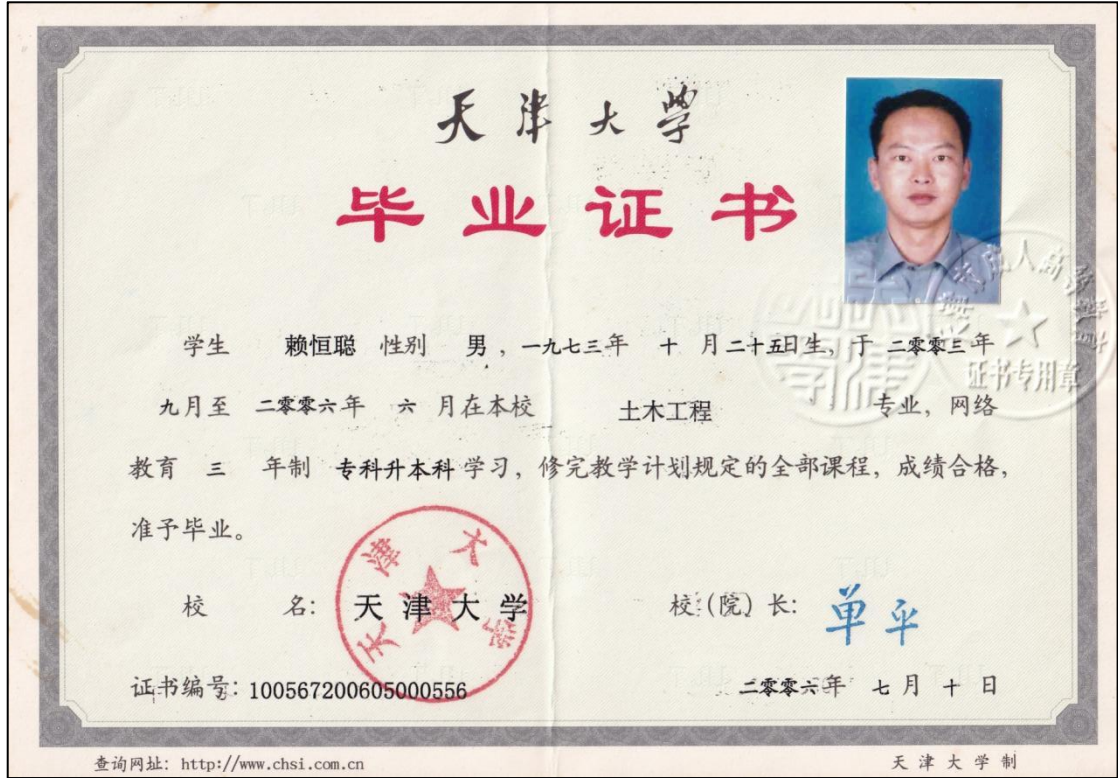 天津大学
毕业证书
学生 赖恒聪 性别 男，一九七三年 十 月二十五日生，于 二零零三年
九月至 二零零六年 六 月在本校 土木工程 专业，网络
教育 三 年制 专科升本科 学习，修完教学计划规定的全部课程，成绩合格，
准予毕业。
校 名：天津大学 校（院）长：单平
天津大学
证书编号：100567200605000556 二零零六年 七 月 十 日
成人高等教育
证书专用章
查询网址：http://www.chsi.com.cn 天津大学制